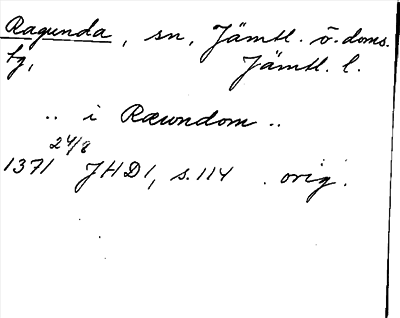 Ragunda, sn, Jämtl. ö. doms.
tg, Jämtl. l.
.. i Rawndom ..
1371 24/8 JHD 1, s. 114 . orig.